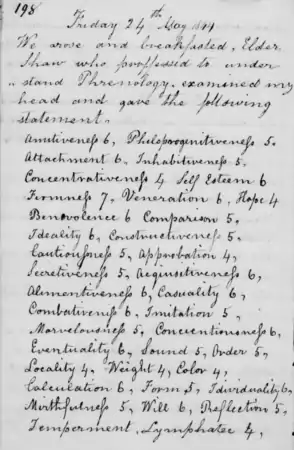 198
Friday 24th May 1844
We arose and breakfasted. Elder
Shaw who proffessed to under
stand Phrenology. examined my
head and gave the following
statement.
Amitiveness 6, Philoprogenitiveness 5.
Attachment 6, Inhabitiveness 5,
Concentrativeness 4 Self Esteem 6
Firmness 7, Veneration 6, Hope 4
Benovolence 6 Comparison 5,
Ideality 6, Constructiveness 5,
Cautiousness 5, Approbation 4,
Secretiveness 5, Acquisitiveness 6,
Alimentiveness 6, Casuality 6,
Combativeness 6, Imitation 5,
Marvelousness 5, Concientiousness 6,
Eventuality 6, Sound 5, Order 5,
Locality 4, Weight 4, Color 4,
Calculation 6, Form 5, Idividuality 6,
Mirthfulness 5, Will 6, Reflection 5,
Temperment, Lymphatec 4,